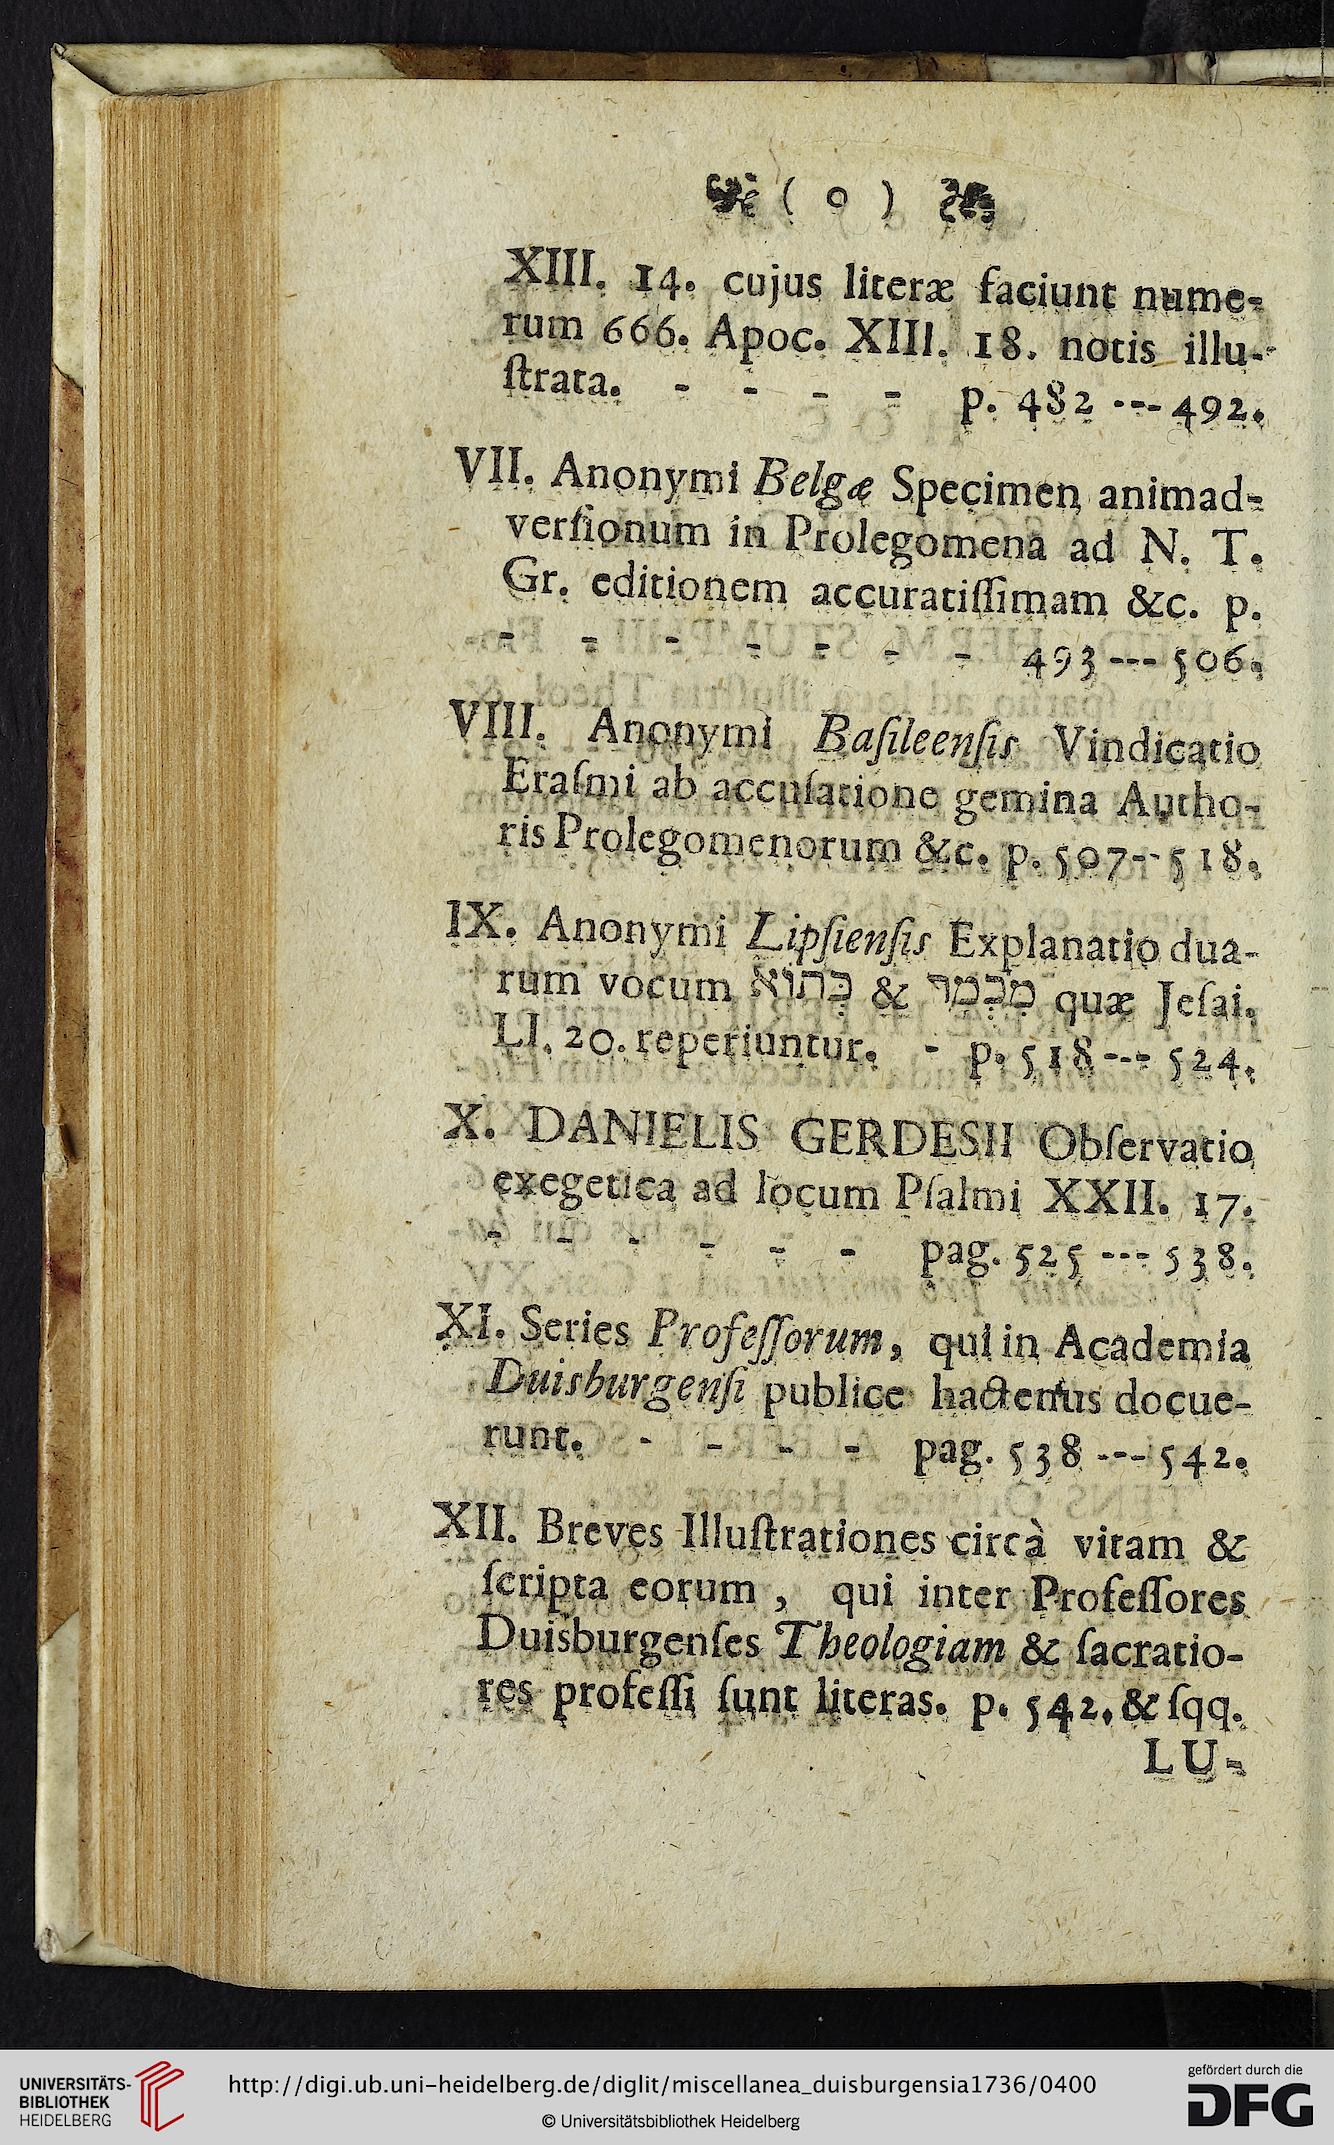 ( o )
XIII. 14. cujus literæ faciunt nume-
rum 666. Apoc. XIII. 18. notis illu-
ſtrata. - - - - p. 482 --- 492.
VII. Anonymi Belgæ Specimen animad-
verſionum in Prolegomena ad N. T.
Gr. editionem accuratiſſimam &c. p.
- - - - - - - 493 --- 506.
VIII. Anonymi Baſileenſis Vindicatio
Eraſmi ab accuſatione gemina Autho-
ris Prolegomenorum &c. p. 507-- 518.
IX. Anonymi Lipſienſis Explanatio dua-
rum vocum כְּתוֹא & מִכְמָר quæ Jeſai.
LI. 20. reperiuntur. - p. 518 --- 524.
X. DANIELIS GERDESII Obſervatio
exegetica ad locum Pſalmi XXII. 17.
- - - - - - pag. 525 --- 538.
XI. Series Profeſſorum, qui in Academia
Duisburgenſi publice hactenus docue-
runt. - - - - pag. 538 --- 542.
XII. Breves Illuſtrationes circà vitam &
ſcripta eorum, qui inter Profeſſores
Duisburgenſes Theologiam & ſacratio-
res profeſſi ſunt literas. p. 542. & ſqq.
LU-
UNIVERSITÄTS-
BIBLIOTHEK
HEIDELBERG
http://digi.ub.uni-heidelberg.de/diglit/miscellanea_duisburgensia1736/0400
© Universitätsbibliothek Heidelberg
gefördert durch die
DFG